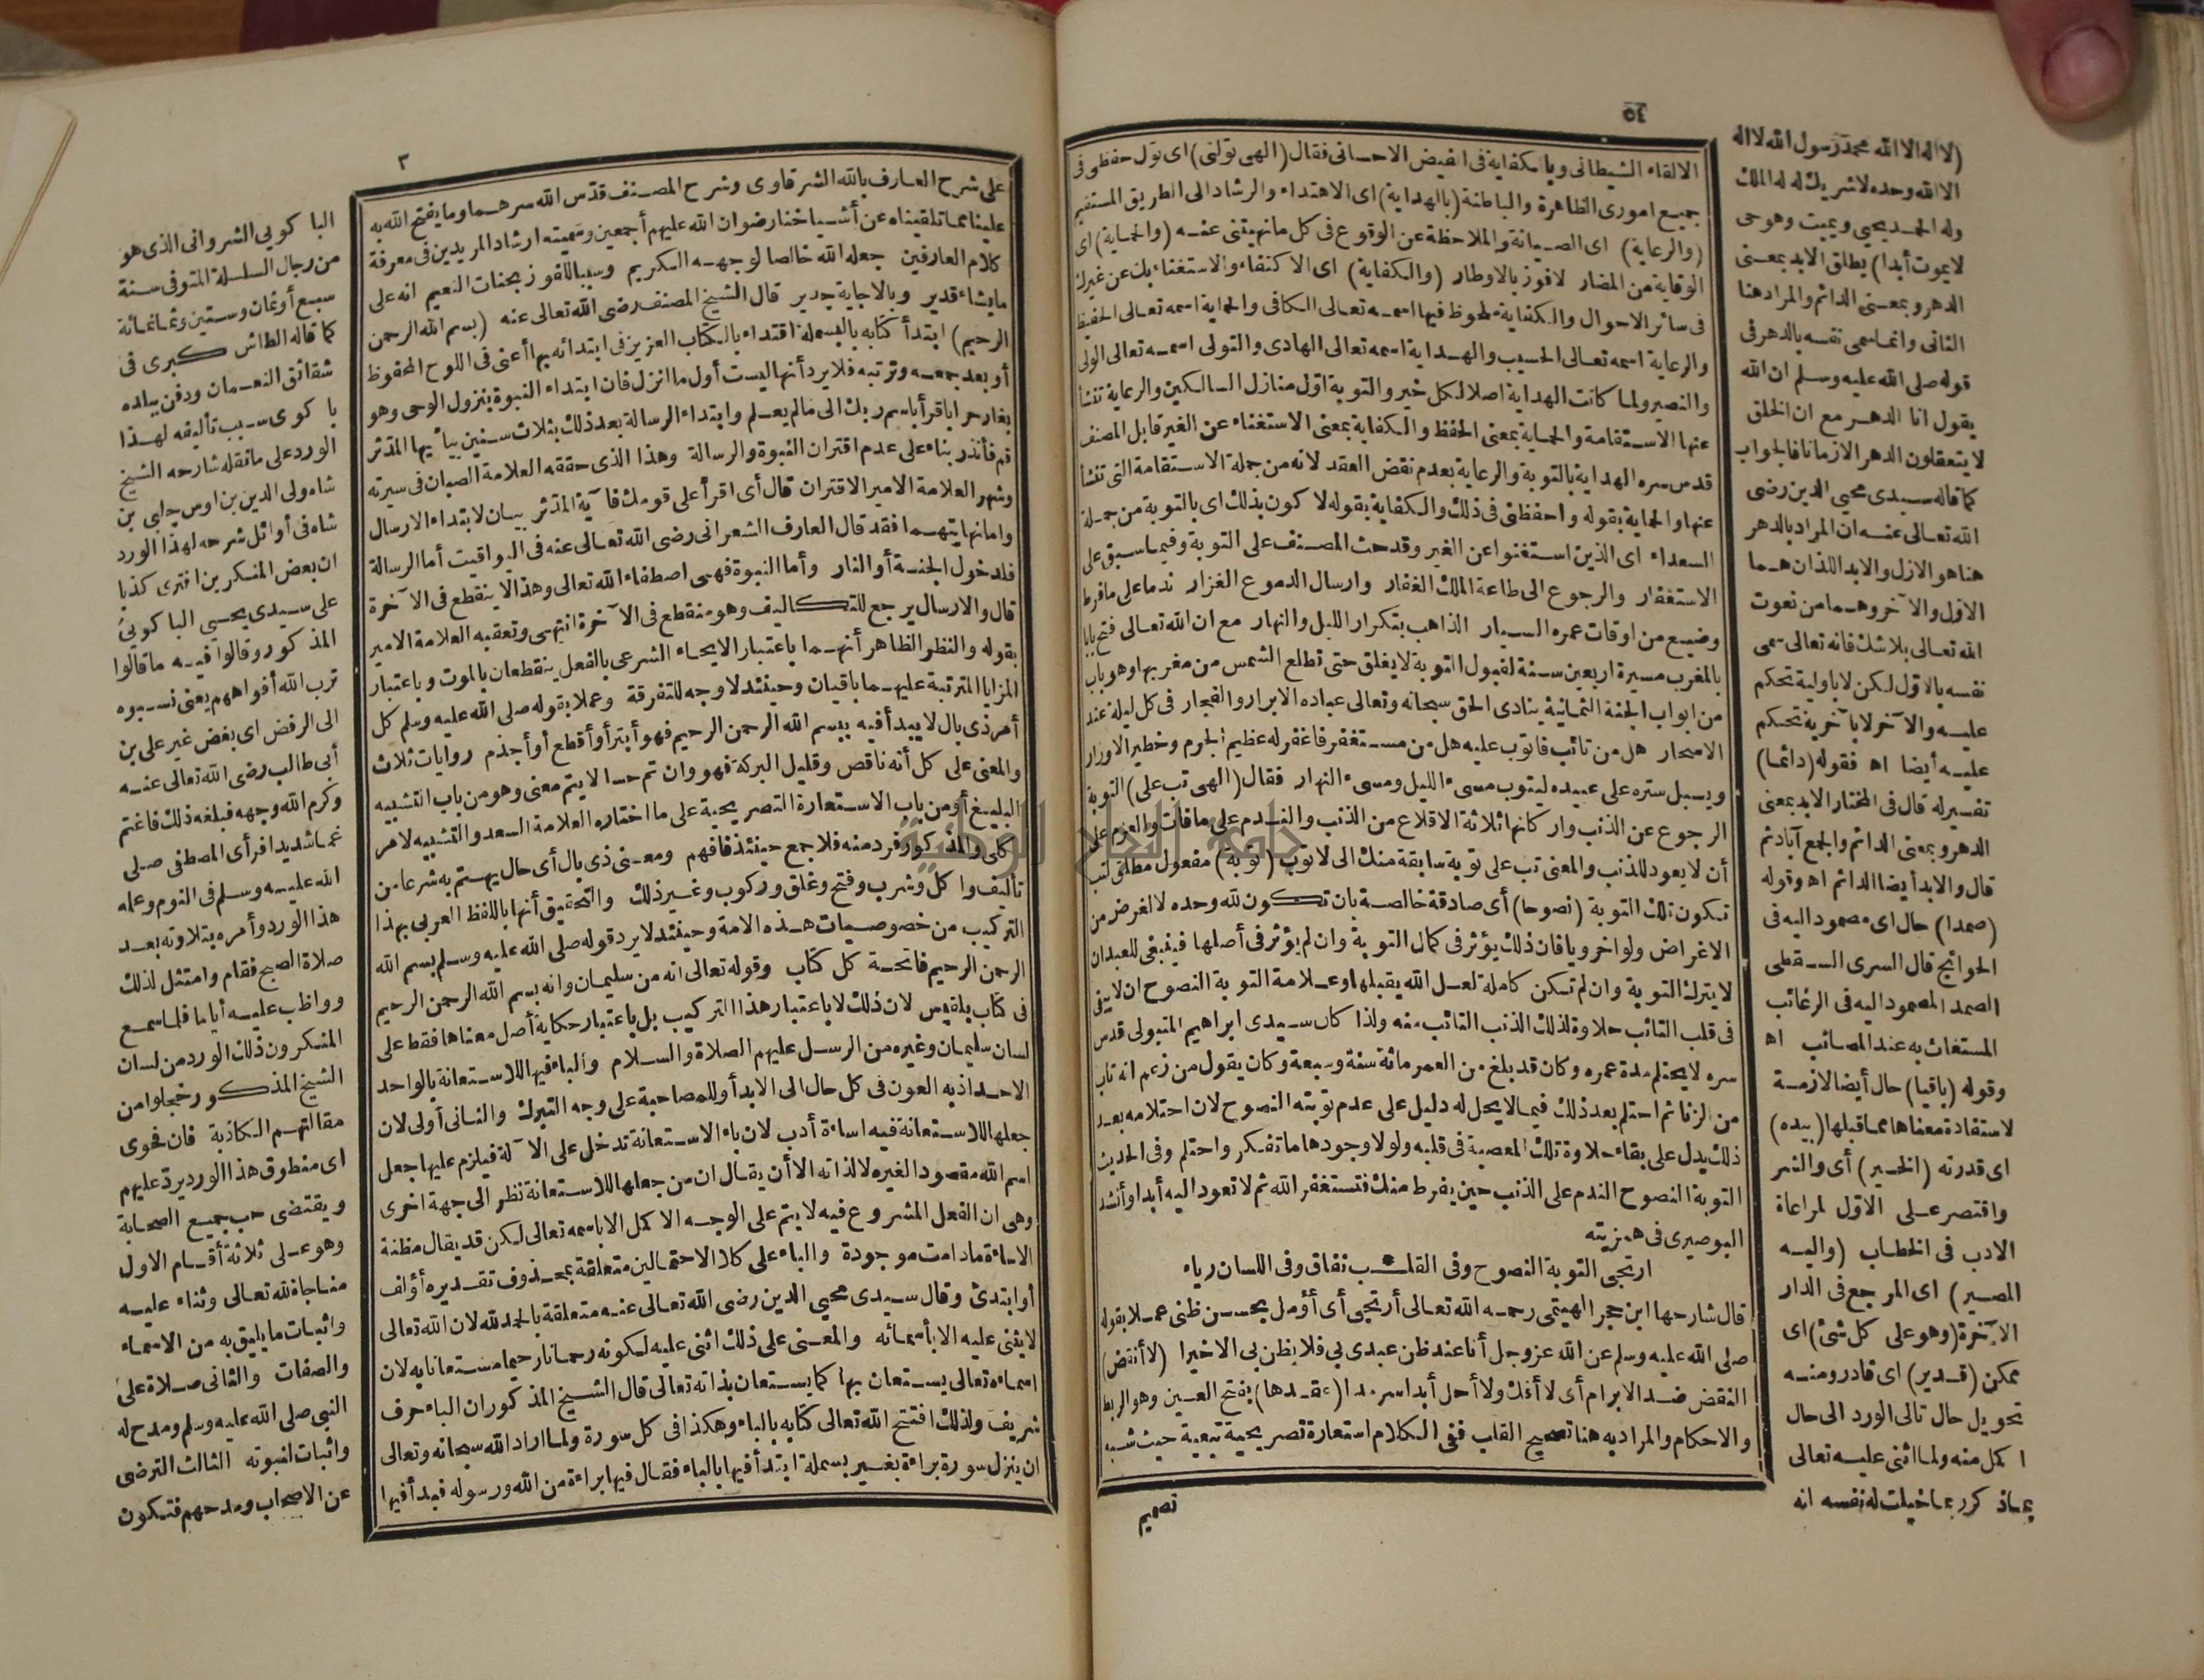 ٦٥
الالقاء الشيطانى وبالكفاية فى الفيض الاحسانى فقال (الهى تولنى) اى تول حفظى فى
جميع امورى الظاهرة والباطنة (بالهداية) اى الاهتداء والرشاد الى الطريق المستقيم
(والرعاية) اى الصيانة والملاحظة عن الوقوع فى كل مانهيتنى عنه (والحماية) اى
الوقاية من المضار لافوز بالاوطار (والكفاية) اى الاكتفاء والاستغناء بك عن غيرك
فى سائر الاحوال والكفاية ملحوظ فيها اسمه تعالى الكافى والحماية اسمه تعالى الحفيظ
والرعاية اسمه تعالى الحسيب والهداية اسمه تعالى الهادى والتولى اسمه تعالى الولى
والنصير ولما كانت الهداية اصلا لكل خير والتوبة اول منازل السالكين والرعاية تنشأ
عنها الاستقامة والحماية بمعنى الحفظ والكفاية بمعنى الاستغناء عن الغير قابل المصنف
قدس سره الهداية بالتوبة والرعاية بعدم نقض العقد لانه من جملة الاستقامة التى تنشأ
عنها والحماية بقوله واحفظنى فى ذلك والكفاية بقوله لاكون بذلك اى بالتوبة من جملة
السعداء اى الذين استغنوا عن الغير وقد حث المصنف على التوبة وفيما سبق على
الاستغفار والرجوع الى طاعة الملك الغفار وارسال الدموع الغزار ندما على مافرط
وضيع من اوقات عمره السيار الذاهب بتكرار الليل والنهار مع ان الله تعالى فتح بابا
بالمغرب مسيرة اربعين سنة لقبول التوبة لايغلق حتى تطلع الشمس من مغربها وهو باب
من ابواب الجنة الثمانية ينادى الحق سبحانه وتعالى عباده الابرار والفجار فى كل ليلة عند
الاسحار هل من تائب فاتوب عليه هل من مستغفر فاغفر له عظيم الجرم وخطير الاوزار
ويسبل ستره على عبيده ليتوب مسىء الليل ومسىء النهار فقال (الهى تب على) التوبة
الرجوع عن الذنب واركانها ثلاثة الاقلاع من الذنب والندم على مافات والعزم على
أن لايعود للذنب والمعنى تب على توبة سابقة منك الى لاتوب (توبة) مفعول مطلق لتب
تكون تلك التوبة (نصوحا) أى صادقة خالصة بان تكون لله وحده لالغرض من
الاغراض ولو اخرويا فان ذلك يؤثر فى كمال التوبة وان لم يؤثر فى أصلها فينبغى للعبد ان
لايترك التوبة وان لم تكن كاملة لعل الله يقبلها وعلامة التوبة النصوح ان لايبقى
فى قلب التائب حلاوة لذلك الذنب التائب منه ولذا كان سيدى ابراهيم المتبولى قدس
سره لايحتلم مدة عمره وكان قد بلغ من العمر مائة سنة وسبعة وكان يقول من زعم انه تاب
من الزنا ثم احتلم بعد ذلك فيما لايحل له دليل على عدم توبته النصوح لان احتلامه بعد
ذلك يدل على بقاء حلاوة تلك المعصية فى قلبه ولولا وجودها ماتفكر واحتلم وفى الحديث
التوبة النصوح الندم على الذنب حين يفرط منك فتستغفر الله ثم لاتعود اليه أبدا وأنشد
البوصيرى فى همزيته
ارتجى التوبة النصوح وفى القلـ * ـب نفاق وفى اللسان رياء
قال شارحها ابن حجر الهيتمى رحمه الله تعالى أرتجى أى أؤمل بحسن ظنى عملا بقوله
صلى الله عليه وسلم عن الله عز وجل أنا عند ظن عبدى بى فلا يظن بى الا خيرا (لا أنقض)
النقض ضد الابرام أى لا أفك ولا أحل أبدا سرمدا (عقدها) بفتح العين وهو الربط
والاحكام والمراد به هنا تصميم القلب ففى الكلام استعارة تصريحية تبعية حيث شبه
تصميم
(لااله الا الله محمد رسول الله لااله
الا الله وحده لاشريك له له الملك
وله الحمد يحيى ويميت وهو حى
لايموت أبدا) يطلق الابد بمعنى
الدهر وبمعنى الدائم والمراد هنا
الثانى وانما سمى نفسه بالدهر فى
قوله صلى الله عليه وسلم ان الله
يقول انا الدهر مع ان الخلق
لايتعقلون الدهر الازمانا فالجواب
كما قاله سيدى محيى الدين رضى
الله تعالى عنه ان المراد بالدهر
هنا هو الازل والابد اللذان هما
الاول والآخر وهما من نعوت
الله تعالى بلاشك فانه تعالى سمى
نفسه بالاول لكن لاباولية تحكم
عليه والآخر لابآخرية تحكم
عليه أيضا اه فقوله (دائما)
تفسير له قال فى المختار الابد بمعنى
الدهر وبمعنى الدائم والجمع آباد ثم
قال والابد أيضا الدائم اه وقوله
(صمدا) حال اى مصمود اليه فى
الحوائج قال السرى السقطى
الصمد المصمود اليه فى الرغائب
المستغاث به عند المصائب اه
وقوله (باقيا) حال أيضا لازمة
لاستفادة معناها مما قبلها (بيده)
اى قدرته (الخير) أى والشر
واقتصر على الاول لمراعاة
الادب فى الخطاب (واليه
المصير) اى المرجع فى الدار
الآخرة (وهو على كل شئ) اى
ممكن (قدير) اى قادر ومنه
تحويل حال تالى الورد الى حال
اكمل منه ولما اثنى عليه تعالى
بماذكر ربما خيلت له نفسه انه
٣
على شرح العارف بالله الشرقاوى وشرح المصنف قدس الله سرهما وما يفتح الله به
علينا مما تلقيناه عن أشياخنا رضوان الله عليهم أجمعين وسميته ارشاد المريدين فى معرفة
كلام العارفين جعله الله خالصا لوجهه الكريم وسببا للفوز بجنات النعيم انه على
مايشاء قدير وبالاجابة جدير قال الشيخ المصنف رضى الله تعالى عنه (بسم الله الرحمن
الرحيم) ابتدأ كتابه بالبسملة اقتداء بالكتاب العزيز فى ابتدائه بها أعنى فى اللوح المحفوظ
أو بعد جمعه وترتبه فلا يرد أنها ليست أول ما انزل فان ابتداء النبوة بنزول الوحى وهو
بغار حرا باقرأ باسم ربك الى مالم يعلم وابتداء الرسالة بعد ذلك بثلاث سنين بيا أيها المدثر
قم فأنذر بناء على عدم اقتران النبوة والرسالة وهذا الذى حققه العلامة الصبان فى سيرته
وشهر العلامة الامير الاقتران قال أى اقرأ على قومك فآية المدثر بيان لابتداء الارسال
واما نهايتهما فقد قال العارف الشعرانى رضى الله تعالى عنه فى اليواقيت أما الرسالة
فلدخول الجنة أو النار وأما النبوة فهى اصطفاء الله تعالى وهذا لا ينقطع فى الآخرة
قال والارسال يرجع للتكاليف وهو منقطع فى الآخرة انتهى وتعقبه العلامة الامير
بقوله والنظر الظاهر أنهما باعتبار الايحاء الشرعى بالفعل ينقطعان بالموت وباعتبار
المزايا المترتبة عليهما باقيان وحينئذ لاوجه للتفرقة وعملا بقوله صلى الله عليه وسلم كل
أمر ذى بال لايبدأ فيه ببسم الله الرحمن الرحيم فهو أبتر أو أقطع أو أجذم روايات ثلاث
والمعنى على كل أنه ناقص وقليل البركة فهو وان تم حسا لايتم معنى وهو من باب التشبيه
البليغ أو من باب الاستعارة التصريحية على ما اختاره العلامة السعد والتشبيه لامر
كلى والمذكور فرد منه فلا جمع حينئذ فافهم ومعنى ذى بال أى حال يهتم به شرعا من
تأليف واكل وشرب وفتح وغلق وركوب وغير ذلك والتحقيق أنها باللفظ العربى بهذا
التركيب من خصوصيات هذه الامة وحينئذ لايرد قوله صلى الله عليه وسلم بسم الله
الرحمن الرحيم فاتحة كل كتاب وقوله تعالى انه من سليمان وانه بسم الله الرحمن الرحيم
فى كتاب بلقيس لان ذلك لاباعتبار هذا التركيب بل باعتبار حكاية أصل معناها فقط على
لسان سليمان وغيره من الرسل عليهم الصلاة والسلام والباء فيها للاستعانة بالواحد
الاحد اذ به العون فى كل حال الى الابد أو للمصاحبة على وجه التبرك والثانى أولى لان
جعلها للاستعانة فيه اساءة أدب لان باء الاستعانة تدخل على الآلة فيلزم عليها جعل
اسم الله مقصودا لغيره لالذاته الا أن يقال ان من جعلها للاستعانة نظر الى جهة اخرى
وهى ان الفعل المشروع فيه لايتم على الوجه الاكمل الا باسمه تعالى لكن قد يقال مظنة
الاساءة مادامت موجودة والباء على كلا الاحتمالين متعلقة بمحذوف تقديره أؤلف
أو ابتدئ وقال سيدى محيى الدين رضى الله تعالى عنه متعلقة بالحمد لله لان الله تعالى
لايثنى عليه الا بأسمائه والمعنى على ذلك اثنى عليه لكونه رحمانا رحيما مستعانا به لان
اسماءه تعالى يستعان بها كما يستعان بذاته تعالى قال الشيخ المذكور ان الباء حرف
شريف ولذلك افتتح الله تعالى كتابه بالباء وهكذا فى كل سورة ولما اراد الله سبحانه وتعالى
ان ينزل سورة براءة بغير بسملة ابتدأ فيها بالباء فقال فيها براءة من الله ورسوله فبدأ فيها
الباكوبى الشروانى الذى هو
من رجال السلسلة المتوفى سنة
سبع أو ثمان وستين وثمانمائة
كما قاله الطاش كبرى فى
شقائق النعمان ودفن ببلده
باكوى سبب تأليفه لهذا
الورد على مانقله شارحه الشيخ
شاه ولى الدين بن اوس جلبى بن
شاه فى أوائل شرحه لهذا الورد
ان بعض المنكرين افترى كذبا
على سيدى يحيى الباكوبى
المذكور وقالوا فيه ماقالوا
ترب الله أفواههم يعنى نسبوه
الى الرفض اى بغض غير على بن
أبى طالب رضى الله تعالى عنه
وكرم الله وجهه فبلغه ذلك فاغتم
غما شديدا فرأى المصطفى صلى
الله عليه وسلم فى النوم وعلمه
هذا الورد وأمره بتلاوته بعد
صلاة الصبح فقام وامتثل لذلك
وواظب عليه أياما فلما سمع
المنكرون ذلك الورد من لسان
الشيخ المذكور خجلوا من
مقالتهم الكاذبة فان فحوى
اى منطوق هذا الورد يرد عليهم
ويقتضى حب جميع الصحابة
وهو على ثلاثة أقسام الاول
مناجاة لله تعالى وثناء عليه
واثبات مايليق به من الاسماء
والصفات والثانى صلاة على
النبى صلى الله عليه وسلم ومدح له
واثبات لنبوته الثالث الترضى
عن الاصحاب ومدحهم فتكون
جامعة النجاح الوطنية